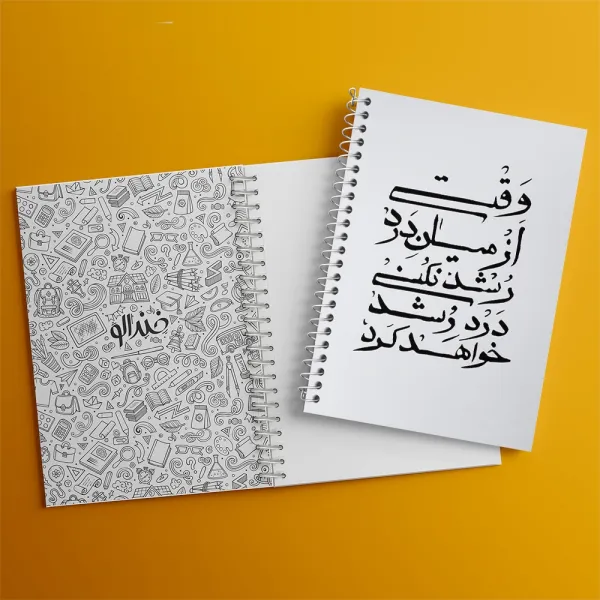 وَقتی
اَز میان دَرد
رُشد نَکُنی
دَرد رُشد
خواهَد کَرد
خندالو